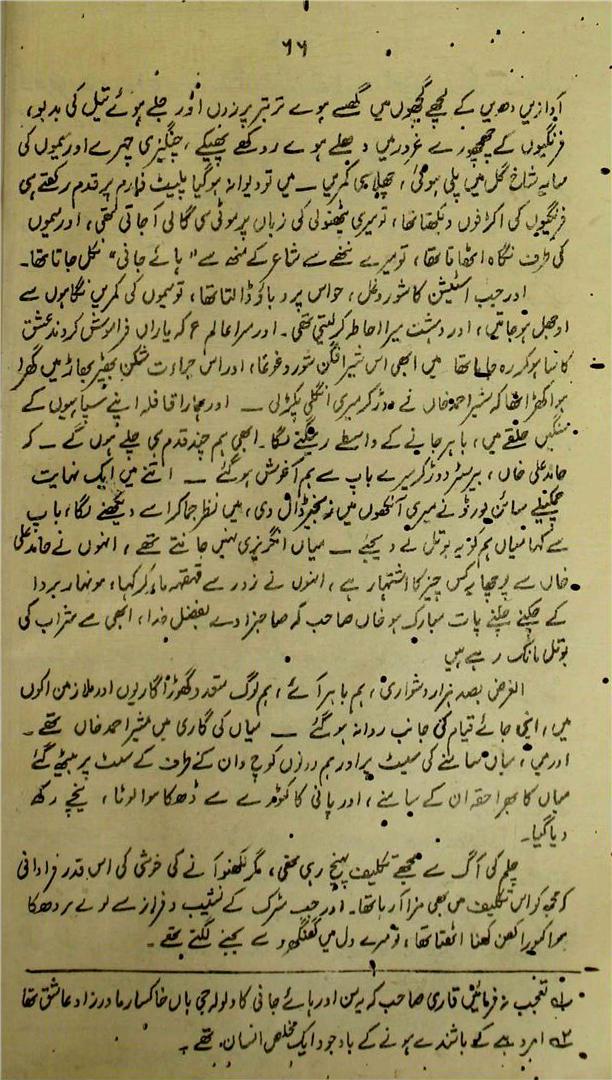 ۶۶
آوازیں دھویں کے لچھے گچھوں میں گھسے ہوے تربتر پرزوں اور جلے ہوئے تیل کی بدبو،
فرنگیوں کے چھچھورے غرور میں دھلے ہوے روکھے پھیکے، چنگیزی چہرے اور میموں کی
سایہ شاخ گل میں پلی ہوئی، چھلا سی کمریں ۔ میں تو دیوانہ ہوگیا پلیٹ فارم پر قدم رکھتے ہی
فرنگیوں کی اکڑفوں دیکھتا تھا، تو میری ٹھٹھولی کی زبان پر موٹی سی گالی آجاتی تھی، اور میموں
کی طرف نگاہ اٹھاتا تھا، تو میرے ننھے سے شاعر کے منھ سے "ہائے جانی" نکل جاتا تھا۔
اور جب اسٹیشن کا شور و غل، حواس پر دباؤ ڈالتا تھا، تو میموں کی کمریں نگاہوں سے
اوجھل ہوجاتیں، اور دہشت میرا احاطہ کرلیتی تھی ۔ اور میرا عالم ع کہ یاراں فراموش کردند عشق
کا سا ہو کر رہ جاتا تھا میں ابھی اس شیر افگن شور و غوغا، اور اس جراءت شکن بھیڑ بھاڑ میں گھرا
ہوا کھڑا تھا کہ مشیر احمد خاں نے دوڑ کر میری انگلی پکڑلی ۔ اور ہمارا قافلہ اپنے سپاہیوں کے
حلقے میں، باہر جانے کے واسطے رینگنے لگا۔ ابھی ہم چند قدم ہی چلے ہوں گے ۔ کہ
حامد علی خاں، بیرسٹر دوڑ کر میرے باپ سے ہم آغوش ہوگئے ۔ اتنے میں ایک نہایت
چمکیلے سائن بورڈ نے میری آنکھوں میں زنجیر ڈال دی، میں نظر جما کر اسے دیکھنے لگا، باپ
سے کہا میاں ہم کو یہ بوتل لے دیجئے ۔ میاں انگریزی نہیں جانتے تھے، انہوں نے حامد علی
خاں سے پوچھا یہ کس چیز کا اشتہار ہے، انہوں نے زور سے قہقہہ مار کر کہا، ہونہار بروا
کے چکنے چکنے پات مبارک ہو خاں صاحب کہ صاحبزادے بفضل خدا، ابھی سے شراب کی
بوتل مانگ رہے ہیں
الغرض بصد ہزار دشواری، ہم باہر آئے، ہم لوگ متعدد گھوڑا گاریوں اور ملازمین اکوں
میں، اپنی جائے قیام کی جانب روانہ ہوگئے ۔ میاں کی گاری میں مشیر احمد خاں تھے ۔
اور میں، میاں سامنے کی سیٹ پر اور ہم دونوں کوچ وان کے طرف کے سیٹ پر بیٹھ گئے
میاں کا بھرا حقہ ان کے سامنے، اور پانی کا کٹورے سے ڈھکا ہوا لوٹا، نیچے رکھ
دیا گیا۔
چلم کی آگ سے مجھے تکلیف پہنچ رہی تھی، مگر لکھنؤ آنے کی خوشی کی اس قدر فراوانی
کہ مجھ کو اس تکلیف میں بھی مزا آرہا تھا۔ اور جب سڑک کے نشیب و فراز سے لوٹے پر ڈھکا
ہوا کٹورا کھن کھنا اٹھتا تھا، تو میرے دل میں گھنگھرو سے بجنے لگتے تھے ۔
۱ تعجب نہ فرمائیں قاری صاحب کہ یہ سن اور ہائے جانی کا ولولہ جی ہاں خاکسار مادرزاد عاشق تھا
۲ امروہے کے باشندے ہونے کے باوجود ایک مخلص انسان تھے ۔